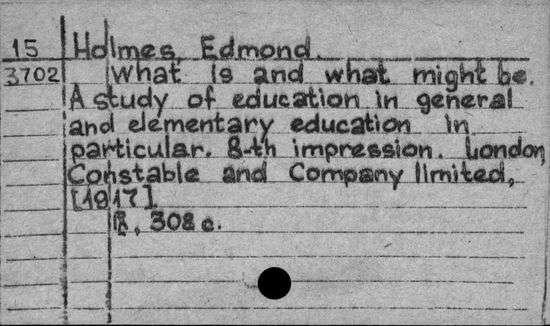 15 Holmes, Edmond.
3702 What is and what might be.
A study of education in general
and elementary education in
particular. 8-th impression. London,
Constable and Company limited,
[1917].
308 c.